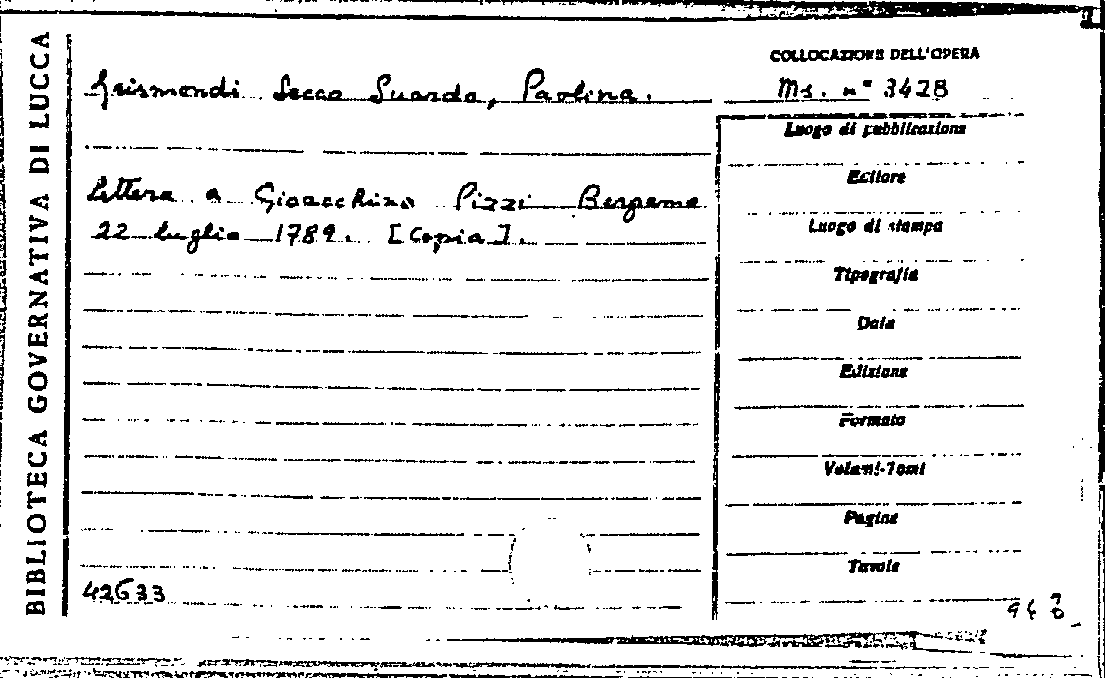 BIBLIOTECA GOVERNATIVA DI LUCCA
Grismondi Secco Suardo, Paolina.
Lettera a Gioacchino Pizzi Bergamo
22 luglio 1789. [Copia].
42633
COLLOCAZIONE DELL'OPERA
Ms. n° 3428
Luogo di pubblicazione
Editore
Luogo di stampa
Tipografia
Data
Edizione
Formato
Volumi-Tomi
Pagine
Tavole